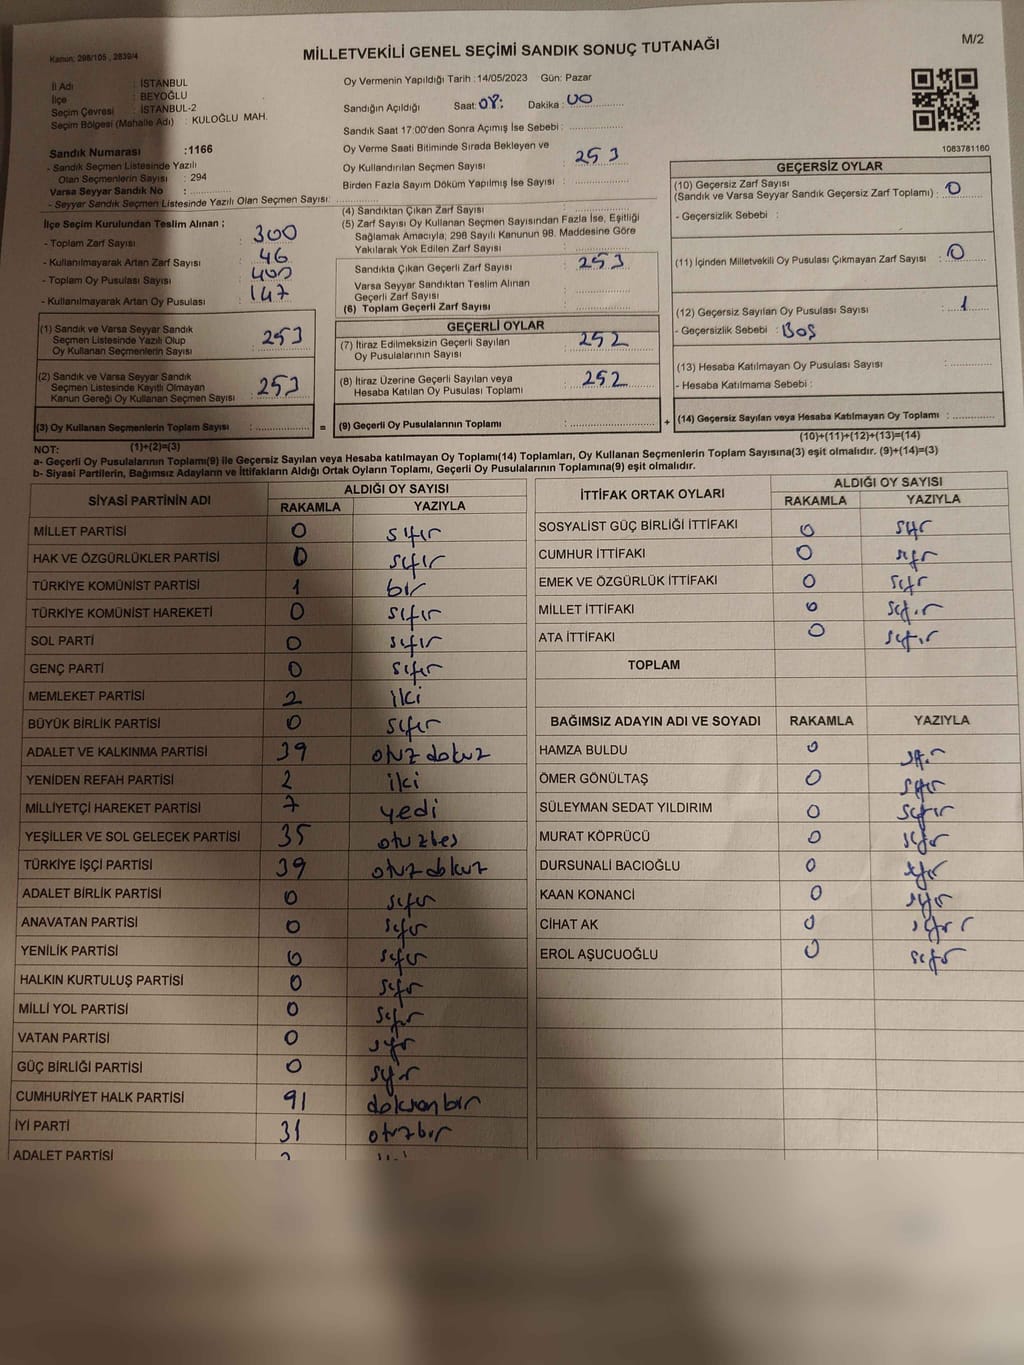 Kanun; 298/105 , 2839/4
MİLLETVEKİLİ GENEL SEÇİMİ SANDIK SONUÇ TUTANAĞI
M/2
İl Adı : İSTANBUL
İlçe : BEYOĞLU
Seçim Çevresi : İSTANBUL-2
Seçim Bölgesi (Mahalle Adı) : KULOĞLU MAH.
Sandık Numarası :1166
- Sandık Seçmen Listesinde Yazılı
Olan Seçmenlerin Sayısı : 294
Varsa Seyyar Sandık No :
- Seyyar Sandık Seçmen Listesinde Yazılı Olan Seçmen Sayısı:
Oy Vermenin Yapıldığı Tarih :14/05/2023 Gün: Pazar
Sandığın Açıldığı Saat: 08: Dakika : 00
Sandık Saat 17:00'den Sonra Açımış İse Sebebi :
Oy Verme Saati Bitiminde Sırada Bekleyen ve
Oy Kullandırılan Seçmen Sayısı : 253
Birden Fazla Sayım Döküm Yapılmış İse Sayısı :
1083781160
İlçe Seçim Kurulundan Teslim Alınan ;
- Toplam Zarf Sayısı : 300
- Kullanılmayarak Artan Zarf Sayısı : 46
- Toplam Oy Pusulası Sayısı : 400
- Kullanılmayarak Artan Oy Pusulası : 147
(1) Sandık ve Varsa Seyyar Sandık
Seçmen Listesinde Yazılı Olup
Oy Kullanan Seçmenlerin Sayısı : 253
(2) Sandık ve Varsa Seyyar Sandık
Seçmen Listesinde Kayıtlı Olmayan
Kanun Gereği Oy Kullanan Seçmen Sayısı : 253
(3) Oy Kullanan Seçmenlerin Toplam Sayısı :
(1)+(2)=(3)
(4) Sandıktan Çıkan Zarf Sayısı :
(5) Zarf Sayısı Oy Kullanan Seçmen Sayısından Fazla İse, Eşitliği
Sağlamak Amacıyla; 298 Sayılı Kanunun 98. Maddesine Göre
Yakılarak Yok Edilen Zarf Sayısı :
Sandıkta Çıkan Geçerli Zarf Sayısı : 253
Varsa Seyyar Sandıktan Teslim Alınan
Geçerli Zarf Sayısı :
(6) Toplam Geçerli Zarf Sayısı :
GEÇERLİ OYLAR
(7) İtiraz Edilmeksizin Geçerli Sayılan
Oy Pusulalarının Sayısı : 252
(8) İtiraz Üzerine Geçerli Sayılan veya
Hesaba Katılan Oy Pusulası Toplamı : 252
= (9) Geçerli Oy Pusulalarının Toplamı :
GEÇERSİZ OYLAR
(10) Geçersiz Zarf Sayısı
(Sandık ve Varsa Seyyar Sandık Geçersiz Zarf Toplamı) : 0
- Geçersizlik Sebebi :
(11) İçinden Milletvekili Oy Pusulası Çıkmayan Zarf Sayısı : 0
(12) Geçersiz Sayılan Oy Pusulası Sayısı : 1
- Geçersizlik Sebebi : Boş
(13) Hesaba Katılmayan Oy Pusulası Sayısı :
- Hesaba Katılmama Sebebi :
+ (14) Geçersiz Sayılan veya Hesaba Katılmayan Oy Toplamı :
(10)+(11)+(12)+(13)=(14)
NOT:
a- Geçerli Oy Pusulalarının Toplamı(9) ile Geçersiz Sayılan veya Hesaba katılmayan Oy Toplamı(14) Toplamları, Oy Kullanan Seçmenlerin Toplam Sayısına(3) eşit olmalıdır. (9)+(14)=(3)
b- Siyasi Partilerin, Bağımsız Adayların ve İttifakların Aldığı Ortak Oyların Toplamı, Geçerli Oy Pusulalarının Toplamına(9) eşit olmalıdır.
SİYASİ PARTİNİN ADI ALDIĞI OY SAYISI
RAKAMLA YAZIYLA
MİLLET PARTİSİ 0 sıfır
HAK VE ÖZGÜRLÜKLER PARTİSİ 0 sıfır
TÜRKİYE KOMÜNİST PARTİSİ 1 bir
TÜRKİYE KOMÜNİST HAREKETİ 0 sıfır
SOL PARTİ 0 sıfır
GENÇ PARTİ 0 sıfır
MEMLEKET PARTİSİ 2 iki
BÜYÜK BİRLİK PARTİSİ 0 sıfır
ADALET VE KALKINMA PARTİSİ 39 otuz dokuz
YENİDEN REFAH PARTİSİ 2 iki
MİLLİYETÇİ HAREKET PARTİSİ 7 yedi
YEŞİLLER VE SOL GELECEK PARTİSİ 35 otuzbes
TÜRKİYE İŞÇİ PARTİSİ 39 otuzdokuz
ADALET BİRLİK PARTİSİ 0 sıfır
ANAVATAN PARTİSİ 0 sıfır
YENİLİK PARTİSİ 0 sıfır
HALKIN KURTULUŞ PARTİSİ 0 sıfır
MİLLİ YOL PARTİSİ 0 sıfır
VATAN PARTİSİ 0 sıfır
GÜÇ BİRLİĞİ PARTİSİ 0 sıfır
CUMHURİYET HALK PARTİSİ 91 doksanbir
İYİ PARTİ 31 otuzbir
ADALET PARTİSİ
İTTİFAK ORTAK OYLARI ALDIĞI OY SAYISI
RAKAMLA YAZIYLA
SOSYALİST GÜÇ BİRLİĞİ İTTİFAKI 0 sıfır
CUMHUR İTTİFAKI 0 sıfır
EMEK VE ÖZGÜRLÜK İTTİFAKI 0 sıfır
MİLLET İTTİFAKI 0 sıfır
ATA İTTİFAKI 0 sıfır
TOPLAM
BAĞIMSIZ ADAYIN ADI VE SOYADI RAKAMLA YAZIYLA
HAMZA BULDU 0 sıfır
ÖMER GÖNÜLTAŞ 0 sıfır
SÜLEYMAN SEDAT YILDIRIM 0 sıfır
MURAT KÖPRÜCÜ 0 sıfır
DURSUNALİ BACIOĞLU 0 sıfır
KAAN KONANCİ 0 sıfır
CİHAT AK 0 sıfır
EROL AŞUCUOĞLU 0 sıfır